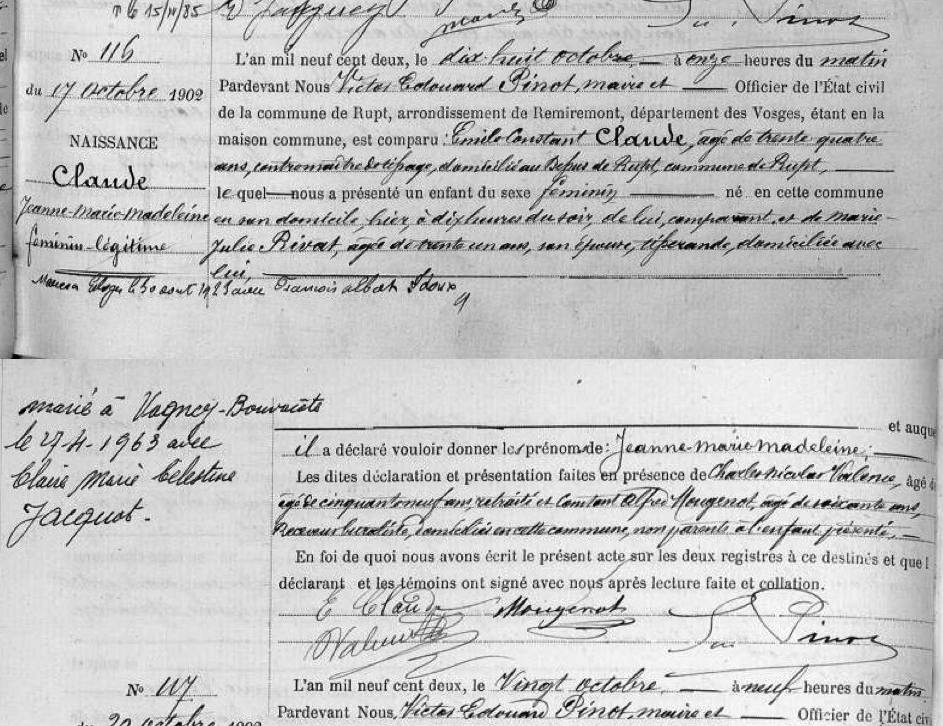 le 15/11/85
Jacquey
N° 116
L'an mil neuf cent deux, le dix-huit octobre, — à onze heures du matin
du 17 octobre 1902
Pardevant Nous Victor Edouard Pinot, maire et — Officier de l'État civil
de la commune de Rupt, arrondissement de Remiremont, département des Vosges, étant en la
NAISSANCE
maison commune, est comparu : Emile Constant Claude, âgé de trente quatre
ans, contremaître de tissage, domicilié au Dessus de Rupt, commune de Rupt, —
Claude
le quel — nous a présenté un enfant du sexe féminin — né en cette commune
Jeanne-Marie-Madeleine
en son domicile, hier, à dix heures du soir, de lui, comparant, et de Marie-
féminin-légitime
Julie Rivat, âgée de trente un ans, son épouse, tisserande, domiciliée avec
lui, —
le 30 aout 1923 avec François albert Idoux
marié à Vagney
le 27-4-1963 avec
Claire Marie Célestine
Jacquot.
et auque
il a déclaré vouloir donner les prénoms de : Jeanne-Marie Madeleine; —
Les dites déclaration et présentation faites en présence de Charles Nicolas Valence, âgé d
âgé de cinquante neuf ans, retraité et Constant Alfred Mougenot, âgé de soixante ans,
Receveur buraliste, domiciliés en cette commune, non parents à l'enfant présenté, —
En foi de quoi nous avons écrit le présent acte sur les deux registres à ce destinés et que l
déclarant et les témoins ont signé avec nous après lecture faite et collation.
E Claude Mougenot Pinot
Valence
N° 117
L'an mil neuf cent deux, le Vingt octobre, — à neuf heures du matin
du 20 octobre 1902
Pardevant Nous, Victor Edouard Pinot, maire et — Officier de l'État civ